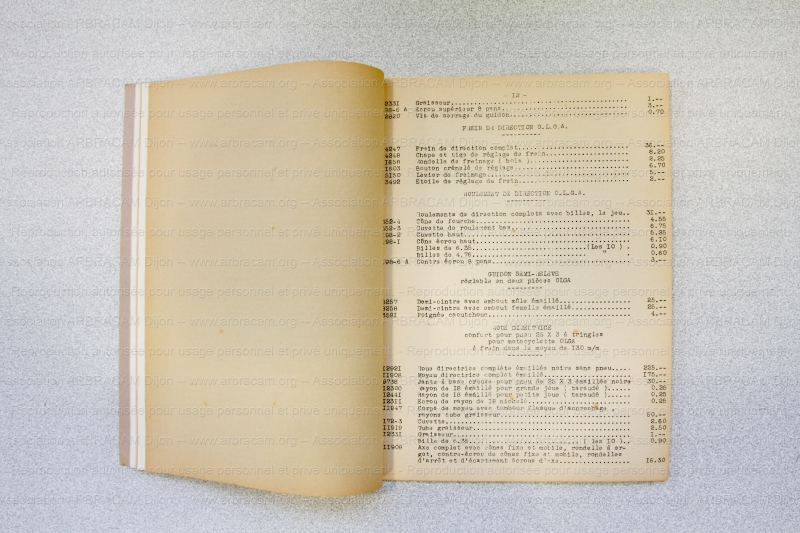 12 -
Graisseur 1.--
Ecrou supérieur 8 pans 3.--
Vis de serrage du guidon 0.70
FREIN DE DIRECTION O.L.G.A.
4247 Frein de direction complet 36.--
4248 Chape et tige de réglage de frein 8.20
Rondelle de freinage ( bois ) 2.25
Bouton crénelé de réglage 6.70
Levier de freinage 5.--
3492 Etoile de réglage de frein 2.--
ROULEMENT DE DIRECTION O.L.G.A.
Roulements de direction complets avec billes, le jeu.. 31.--
Cône de fourche 4.55
Cuvette de roulement bas 6.75
Cuvette haut 5.35
Cône écrou haut 6.10
Billes de 6.35 (les 10 ) . 0.90
Billes de 4.76 " . 0.60
Contre écrou 8 pans 3.--
GUIDON SEMI-RELEVE
réglable en deux pièces OLGA
Demi-cintre avec embout mâle émaillé 25.--
Demi-cintre avec embout femelle émaillé 25.--
Poignée caoutchouc 4.--
ROUE DIRECTRICE
confort pour pneu 25 X 3 à tringles
pour motocyclette OLGA
à frein dans le moyeu de 130 m/m
I2921 Roue directrice complète émaillée noire sans pneu 225.--
I1908 Moyeu directrice complet émaillé 175.--
Jante à base creuse pour pneu de 25 X 3 émaillée noire 30.--
I2300 Rayon de 18 émaillé pour grande joue ( taraudé ) 0.25
I2441 Rayon de 18 émaillé pour petite joue ( taraudé ) 0.25
I2311 Ecrou de rayon de 18 nickelé 0.25
I1947 Corps de moyeu avec tambour flasque d'accrochage
rayons tube graisseur 50.--
I72-3 Cuvette 2.60
I1919 Tube graisseur 2.50
I2331 Graisseur 1.--
Bille de 6.35 ( les 10 ) . 0.90
I1909 Axe complet avec cônes fixe et mobile, rondelle à er-
got, contre-écrou de cônes fixe et mobile, rondelles
d'arrêt et d'écartement écrous d'axe 16.30